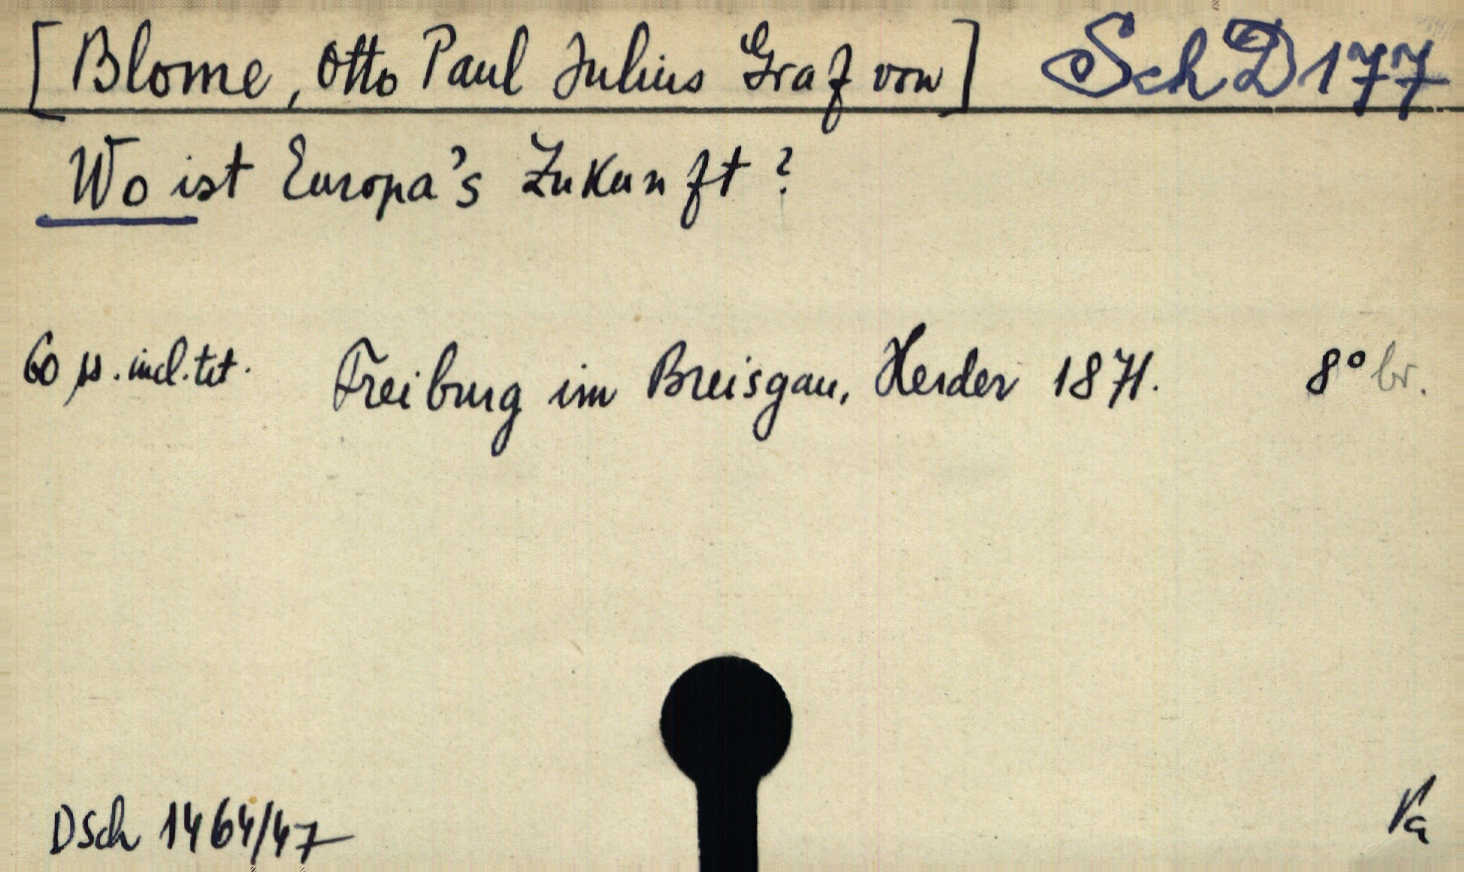 [Blome, Otto Paul Julius Graf von] SchD177
Wo ist Europa's Zukunft?
60 ss. incl. tit. Freiburg im Breisgau, Herder 1871. 8° br.
DSch 1464/47 Va